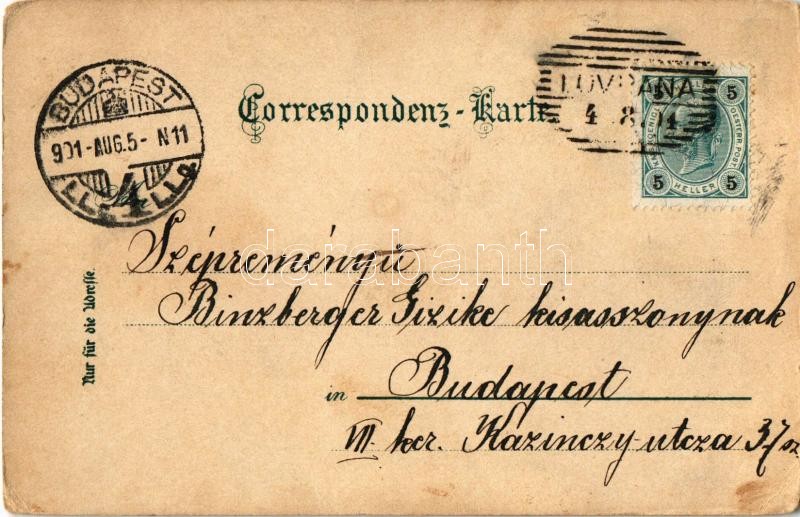 BUDAPEST
901-AUG.5- N11
4
Correspondenz-Karte
LOVRANA
4 8 01
5 5
OESTERR. POST
5 HELLER 5
Szépreményű
Binzberger Gizike kisasszonynak
in Budapest
VII. ker. Kazinczy-utcza 37 sz
Nur für die Adresse.
darabanth